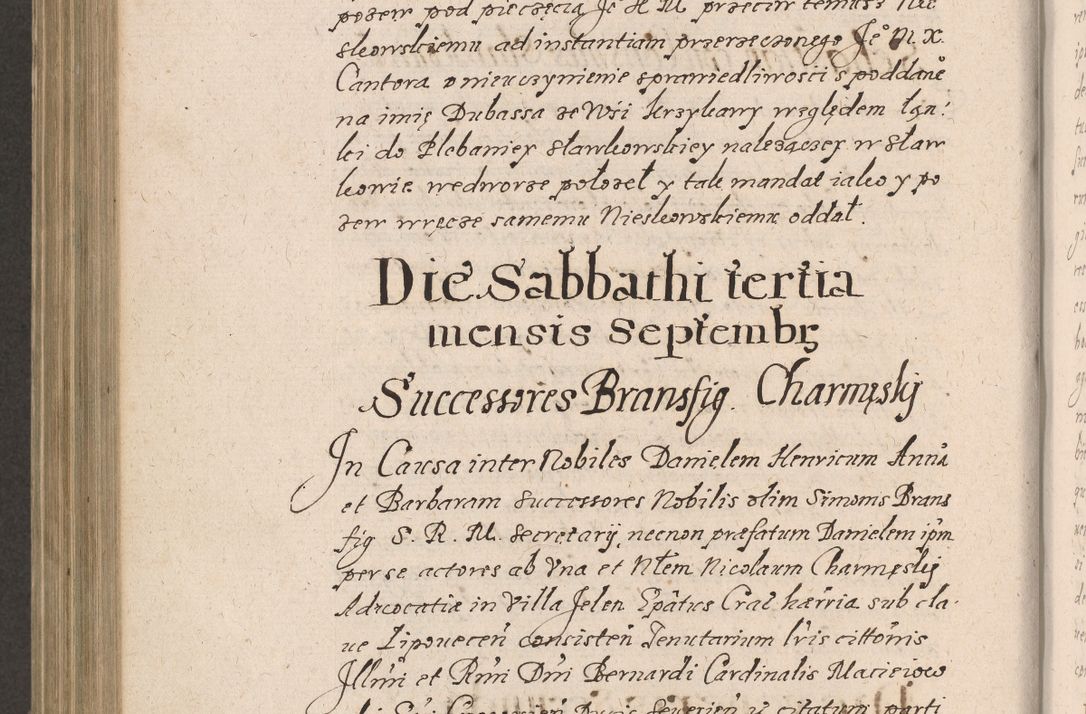 pozew pod pieczęcią Je° K M przeciw temusz Nie
skowskiemu ad instantiam przerzeczonego Je° M X.
Cantora o nieuczynienie sprawiedliwosci s poddanē
na imię Dubassa ze Wśi Krzykawy względem łąn:
ki do Plebaniey Sławkowskiey należączey w Sław
kowie wedworze położeł y tak mandat iako y po
zew wręcze samemu Nieskowskiemu oddał.
Die Sabbathi tertia
mensis Septembr
Successores Bransfig. Charmęskÿ
In Causa inter Nobiles Danielem Henricum Annā
et Barbaram Successores Nobilis olim Simonis Brans
fig S. R. M. Secretarÿ, necnon præfatum Danielem ipm
per se actores ab Vna et Nłem Nicolaum Charmęskÿ
Advocatiæ in Villa Jelen Epātus Crac hærria sub cla-
ue Lipouecen consisten Tenutarium lris cittonis
Jllmi et Rmi Dni Bernardi Cardinalis Macieiow